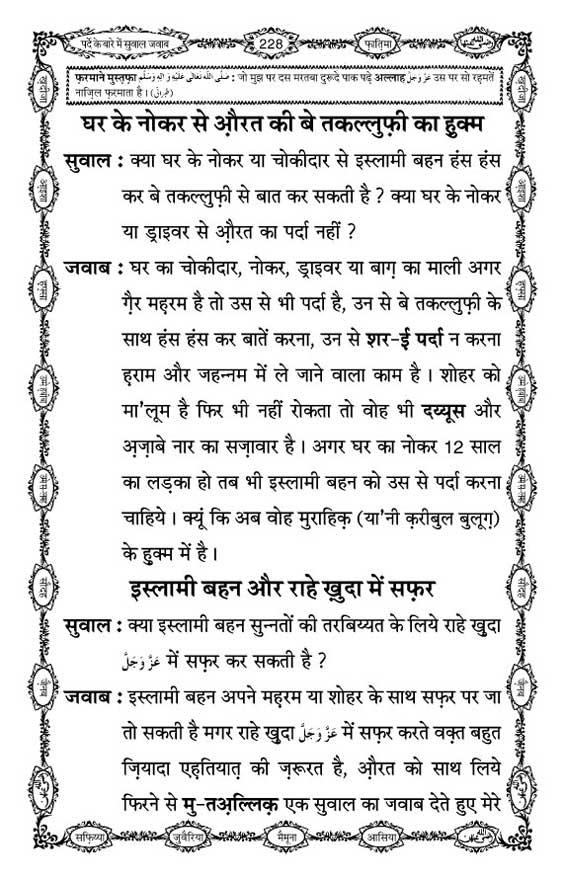 पर्दे के बारे में सुवाल जवाब 228 फ़ातिमा
फ़रमाने मुस्तफ़ा صَلَّى اللهُ تَعَالٰى عَلَيْهِ وَاٰلِهٖ وَسَلَّم : जो मुझ पर दस मरतबा दुरूदे पाक पढ़े अल्लाह عَزَّوَجَلَّ उस पर सो रहमतें
नाज़िल फ़रमाता है । (طبرانی)
घर के नोकर से औ़रत की बे तकल्लुफ़ी का हुक्म
सुवाल : क्या घर के नोकर या चोकीदार से इस्लामी बहन हंस हंस
कर बे तकल्लुफ़ी से बात कर सकती है ? क्या घर के नोकर
या ड्राइवर से औ़रत का पर्दा नहीं ?
जवाब : घर का चोकीदार, नोकर, ड्राइवर या बाग़ का माली अगर
ग़ैर मह़रम है तो उस से भी पर्दा है, उन से बे तकल्लुफ़ी के
साथ हंस हंस कर बातें करना, उन से शर-ई पर्दा न करना
ह़राम और जहन्नम में ले जाने वाला काम है । शोहर को
मा'लूम है फिर भी नहीं रोकता तो वोह भी दय्यूस और
अ़ज़ाबे नार का सज़ावार है । अगर घर का नोकर 12 साल
का लड़का हो तब भी इस्लामी बहन को उस से पर्दा करना
चाहिये । क्यूं कि अब वोह मुराहिक़ (या'नी क़रीबुल बुलूग़)
के हुक्म में है ।
इस्लामी बहन और राहे ख़ुदा में सफ़र
सुवाल : क्या इस्लामी बहन सुन्नतों की तरबिय्यत के लिये राहे ख़ुदा
عَزَّوَجَلَّ में सफ़र कर सकती है ?
जवाब : इस्लामी बहन अपने मह़रम या शोहर के साथ सफ़र पर जा
तो सकती है मगर राहे ख़ुदा عَزَّوَجَلَّ में सफ़र करते वक़्त बहुत
ज़ियादा एह़तियात़ की ज़रूरत है, औ़रत को साथ लिये
फिरने से मु-तअ़ल्लिक़ एक सुवाल का जवाब देते हुए मेरे
सफ़िय्या जुवैरिया मैमूना आसिया